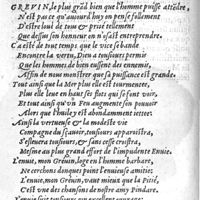 GREVIN, le plus grãd bien que l'homme puisse attẽdre,
N'est pas ce qu'aujourd'huy on pense follement
D'estre loué de tous & d'estre priué tellement
Que dessus son honneur on n'osast entreprendre.
Ca esté de tout temps que le vice se bande
Encontre la vertu, Dieu a tousiours permis
Que les hommes de bien eussent des ennemis,
Affin de nous monstrer que sa puissance est grande.
Tout ainsi que la Mer plus elle est tourmentee,
Plus elle haut en haut ses flots qui se font voir,
Et tout ainsi qu'un Feu augmente son pouuoir
Alors que l'huile y est abondamment iettee:
Ainsi la vertueuse & la modeste vie
Compagne du sçauoir, tousiours apparoistra,
S'esleuera tousiours, & sans cesse croistra,
Mesme au plus grand effort de l'impudente Enuie.
L'enuie, mon Gréuin, loge en l'homme barbare,
Ne cerchons doncques point l'enuieuse amitié:
L'enuie, mon Gréuin, vaut mieux que la Pitié,
C'est une des chansons de nostre amy Pindare.